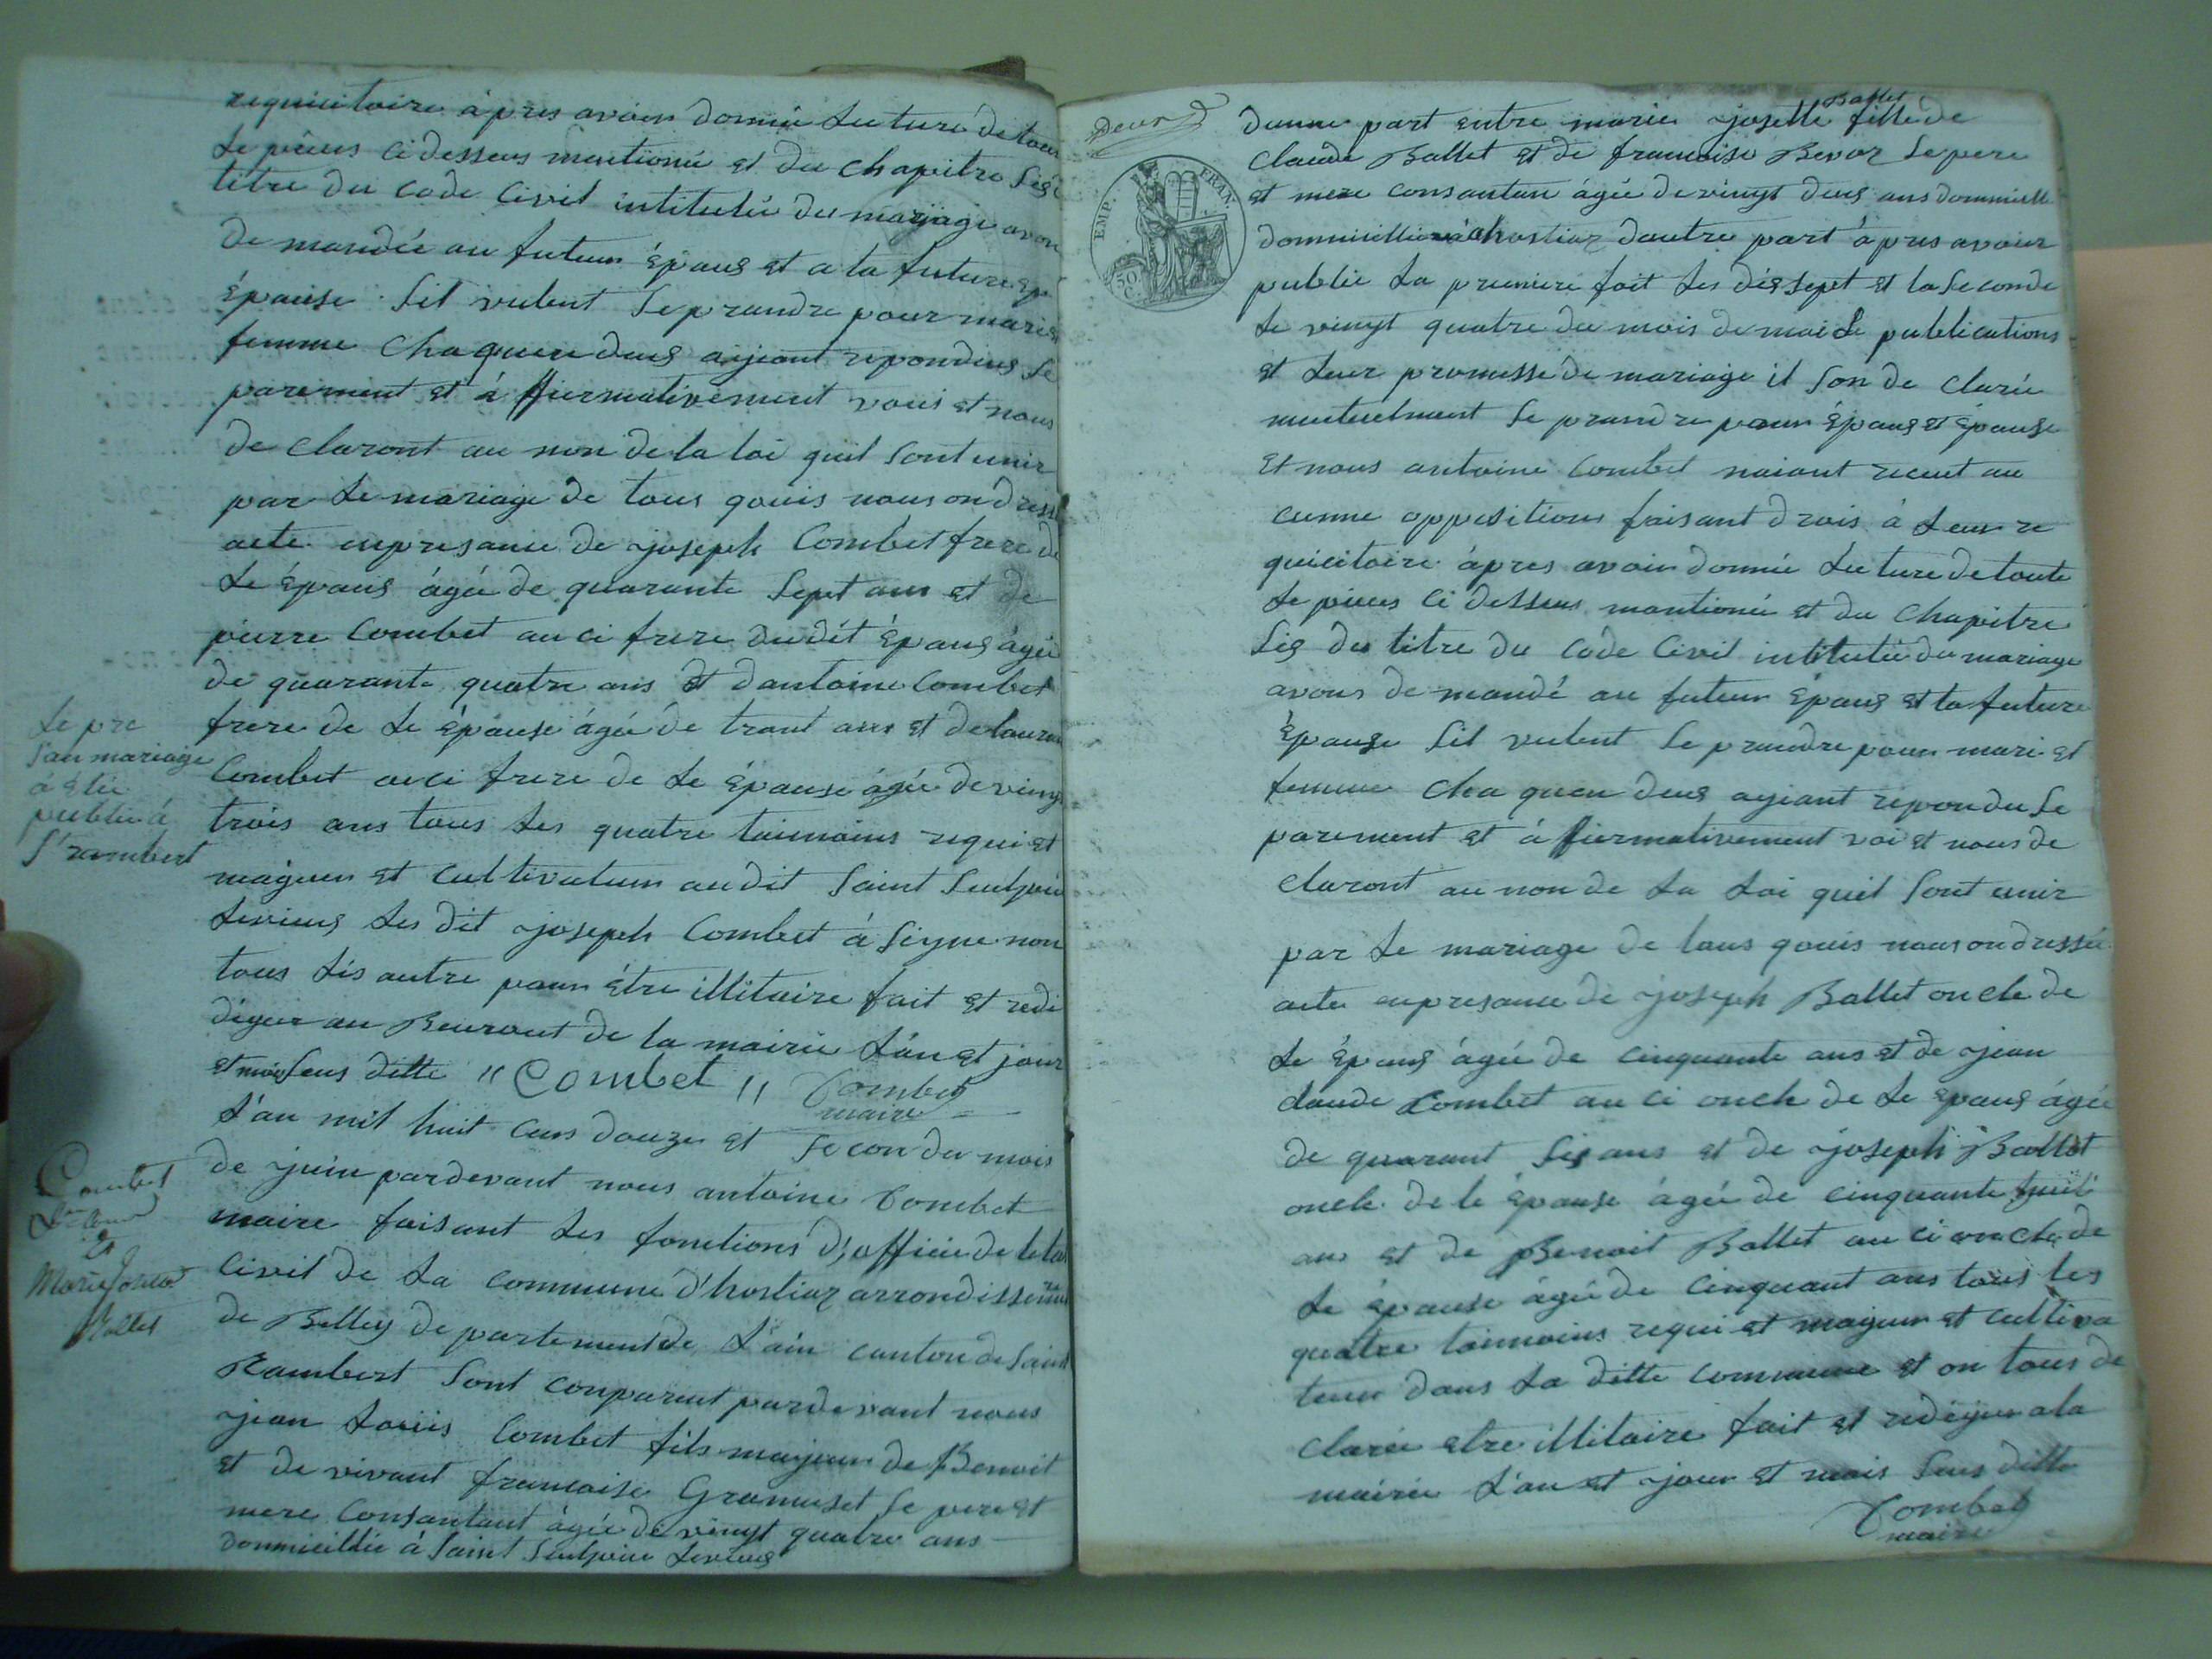 requicitoire àpres avoir donnée lecture de tout
le pieces ci dessus mentionné et du chapitre sis
titre du code Civil intitulée du mariage avon
demandée au futeur épous et a la future
épause sil vulent se prandre pour mari et
femme chaqueu deus aijeant repondus se
parement et à ffiermativement voui et nous
de claront au non de la loi quil sont unir
par le mariage de tous qouis nous on dressé
acte enpresance de joseph Combet frere de
le épous àgée de quarante sept ans et de
pierre Combet auci frere dudit épous àgée
de quarante quatre ans et dantoine Combet
frere de le épause àgée de trant ans et de laurent
Combet auci frere de le épause àgée de vingt
trois ans tous les quatre taimoins requi et
majeur et cultivateur audit Saint Sulpice
levieus les dit joseph Combet à signe non
tous lés autre pour étre illitaire fait et redi
diger au Beuraut de la mairie l'an et jour
et mois sus ditte " Combet " Combet
maire
Le pre
san mariage
à étée
publiée à
St rambert
Combet
et
Marie Josette
Ballet
L'an mil huit cens douze et secon du mois
de juin pardevant nous antoine Combet
maire faisant les fonctions d'officie de letat
Civil de la commune d'hostiaz arrondissement
de Belley departement de L'ain canton de Saint
Rambert sont conparent pardevant nous
jean Louis Combet fils majeur de Benoit
et de vivant francoise Gramuset le pere et
mere Consantant àgée de vingt quatre ans
dommicillié à Saint Sulpice levieus
Deus
EMP. FRAN.
50 C.
dunne part entre marie josette Ballet fille de
Claude Ballet et de francoise Bevoz le pere
et mere consantan àgée de vingt deus ans dommicill
dommicilliée à hostiaz dautre part àpres avoir
publiée la premiere fait les dis sept et la seconde
le vingt quatre du mois de mai le publications
et leur promesse de mariage il son de clarée
mutuelment se prandre pour épous et épause
et nous antoine Combet naiant recut au
cunne oppositions faisant drois à leur re
quicitoire àpres avoir donnée lecture de toute
le pieces ci dessus mantionée et du chapitre
sis du titre du Code Civil intitulée du mariage
avons de mandé au futeur épous et la future
épause sil vulent se prandre pour mari et
femme chaqueu deus ayieant repondu se
parement et à ffiermativement voi et nous de
claront au non de la Loi quil sont unir
par le mariage de tous qouis nous on dressée
acte enpresance de joseph Ballet oncle de
le épous àgée de cinquante ans et de jean
claude Combet au ci oncle de le epous àgée
de quarant sis ans et de joseph Ballet
oncle de le épause àgée de cinquante huit
ans et de Benoit Ballet au ci oncle de
le épause àgée de cinquant ans tous les
quatre taimoins requi et majeur et cultiva
teur dans la ditte commune et on tous de
clarée etre illitaire fait et rediger a la
mairie L'an et jour et mois sus ditte
Combet
maire